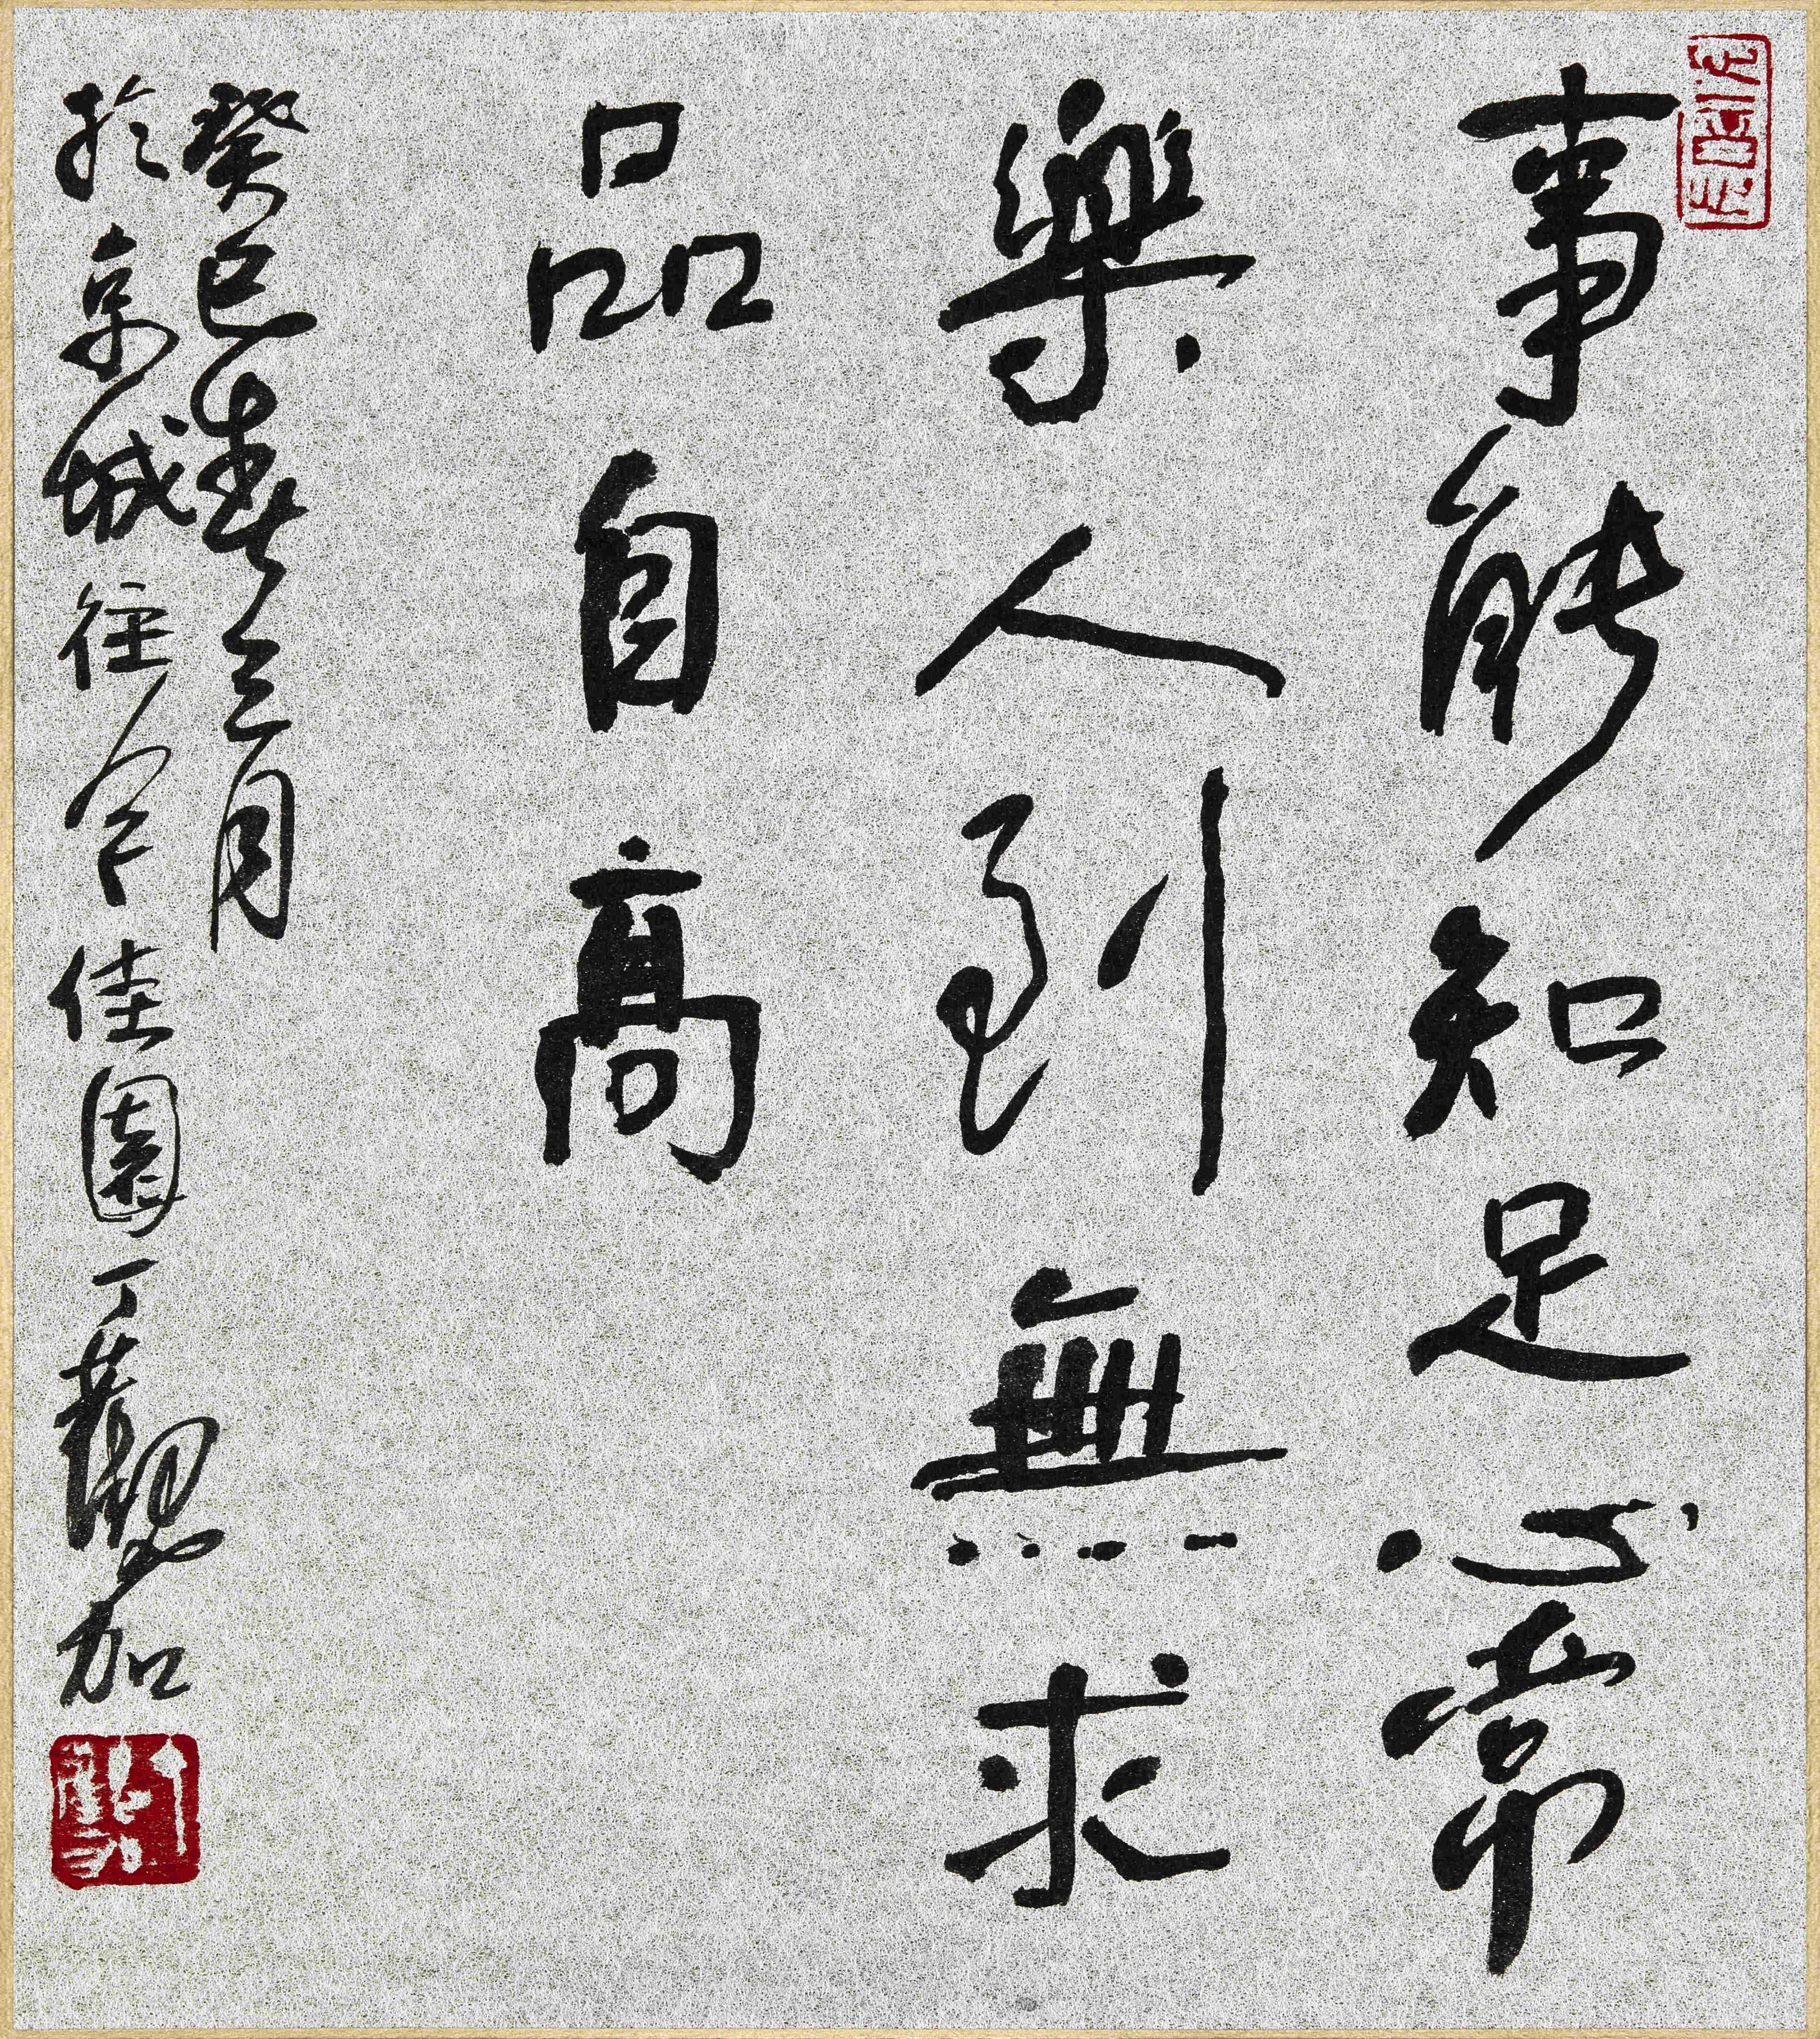 事能知足心常
樂人到無求
品自高
癸巳春三月
於京城
佳園丁觀加